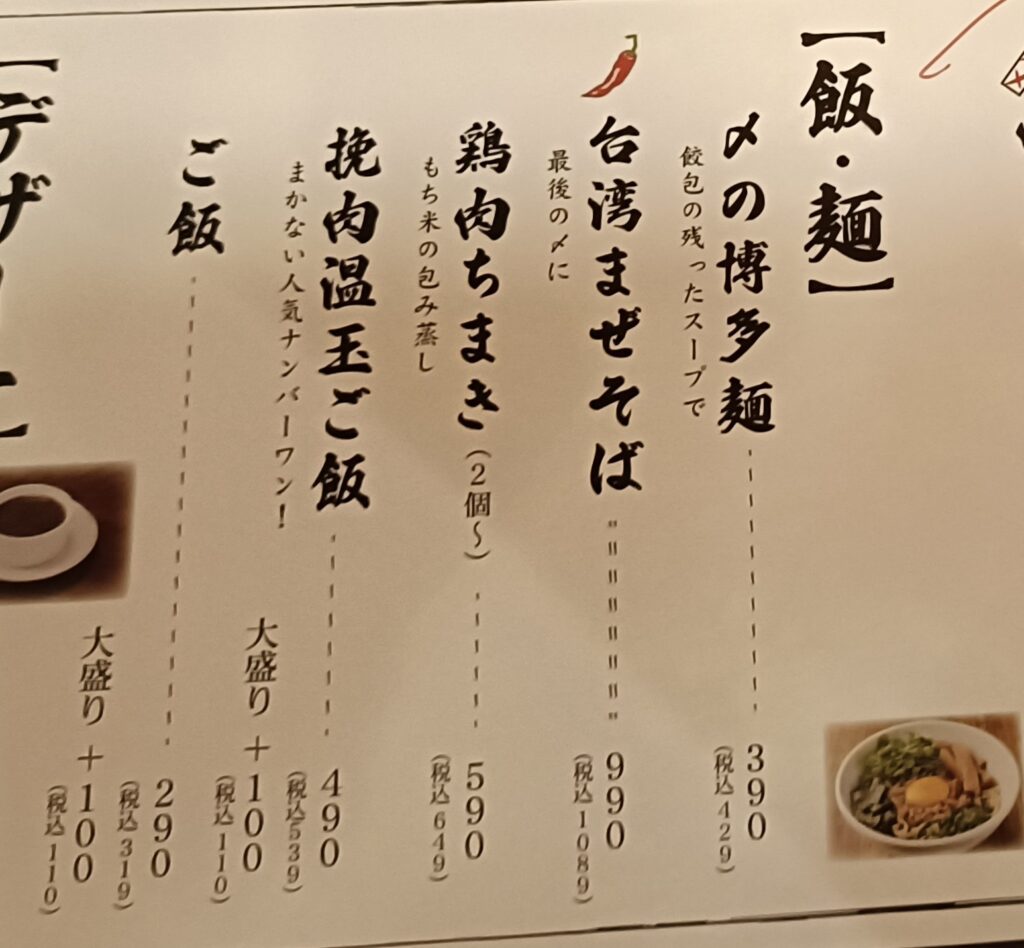 【飯・麺】
〆の博多麺
390
(税込429)
餃包の残ったスープで
台湾まぜそば
990
(税込1089)
最後の〆に
鶏肉ちまき(2個〜)
590
(税込649)
もち米の包み蒸し
挽肉温玉ご飯
490
(税込539)
まかない人気ナンバーワン!
大盛り+100
(税込110)
ご飯
290
(税込319)
大盛り+100
(税込110)
【デザ